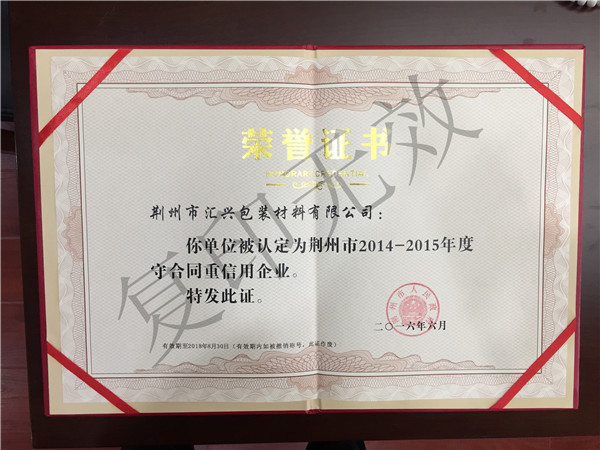 荣誉证书
荆州市汇兴包装材料有限公司：
你单位被认定为荆州市2014-2015年度
守合同重信用企业。
特发此证。
荆州市人民政府
二〇一六年六月
有效期至2018年8月30日（有效期内如被撤销称号，此证作废）
复印无效